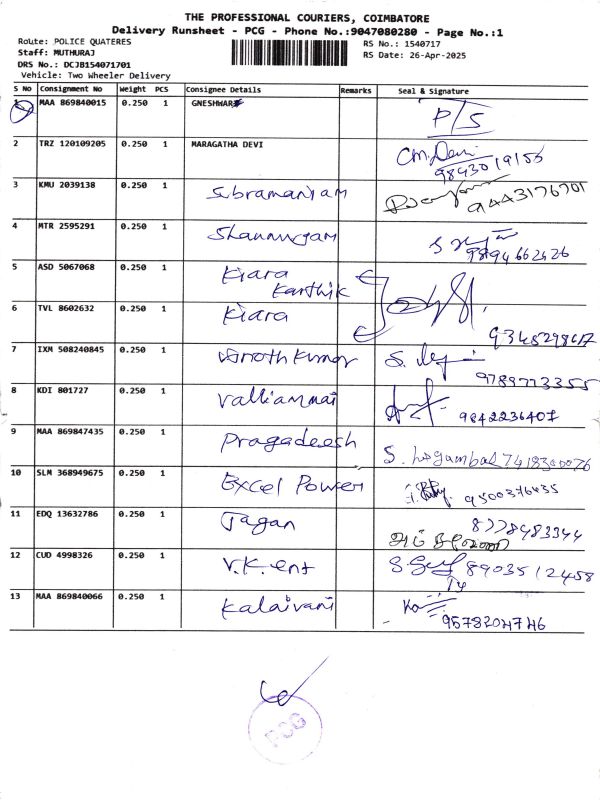 THE PROFESSIONAL COURIERS, COIMBATORE
Delivery Runsheet - PCG - Phone No.:9047080280 - Page No.:1
Route: POLICE QUATERES
RS No.: 1540717
Staff: MUTHURAJ
RS Date: 26-Apr-2025
DRS No.: DCJB154071701
Vehicle: Two Wheeler Delivery
S No Consignment No Weight PCS Consignee Details Remarks Seal & Signature
1 MAA 869840015 0.250 1 GNESHWAR P/S
2 TRZ 120109205 0.250 1 MARAGATHA DEVI C.M.Devi
9843019155
3 KMU 2039138 0.250 1 Subramaniyam
9443176701
4 MTR 2595291 0.250 1 Shanmugam
9894662426
5 ASD 5067068 0.250 1 Kiara
Karthik
6 TVL 8602632 0.250 1 Kiara
9345298617
7 IXM 508240845 0.250 1 Vinoth Kumar
9789773355
8 KDI 801727 0.250 1 Valliammai 9842236407
9 MAA 869847435 0.250 1 Pragadeesh S. Logambal 7418300076
10 SLM 368949675 0.250 1 Excel Power 9500376435
11 EDQ 13632786 0.250 1 Jagan 8778483344
12 CUD 4998326 0.250 1 V.K. ent 8903512458
13 MAA 869840066 0.250 1 Kalaivani
9578204746
PCG